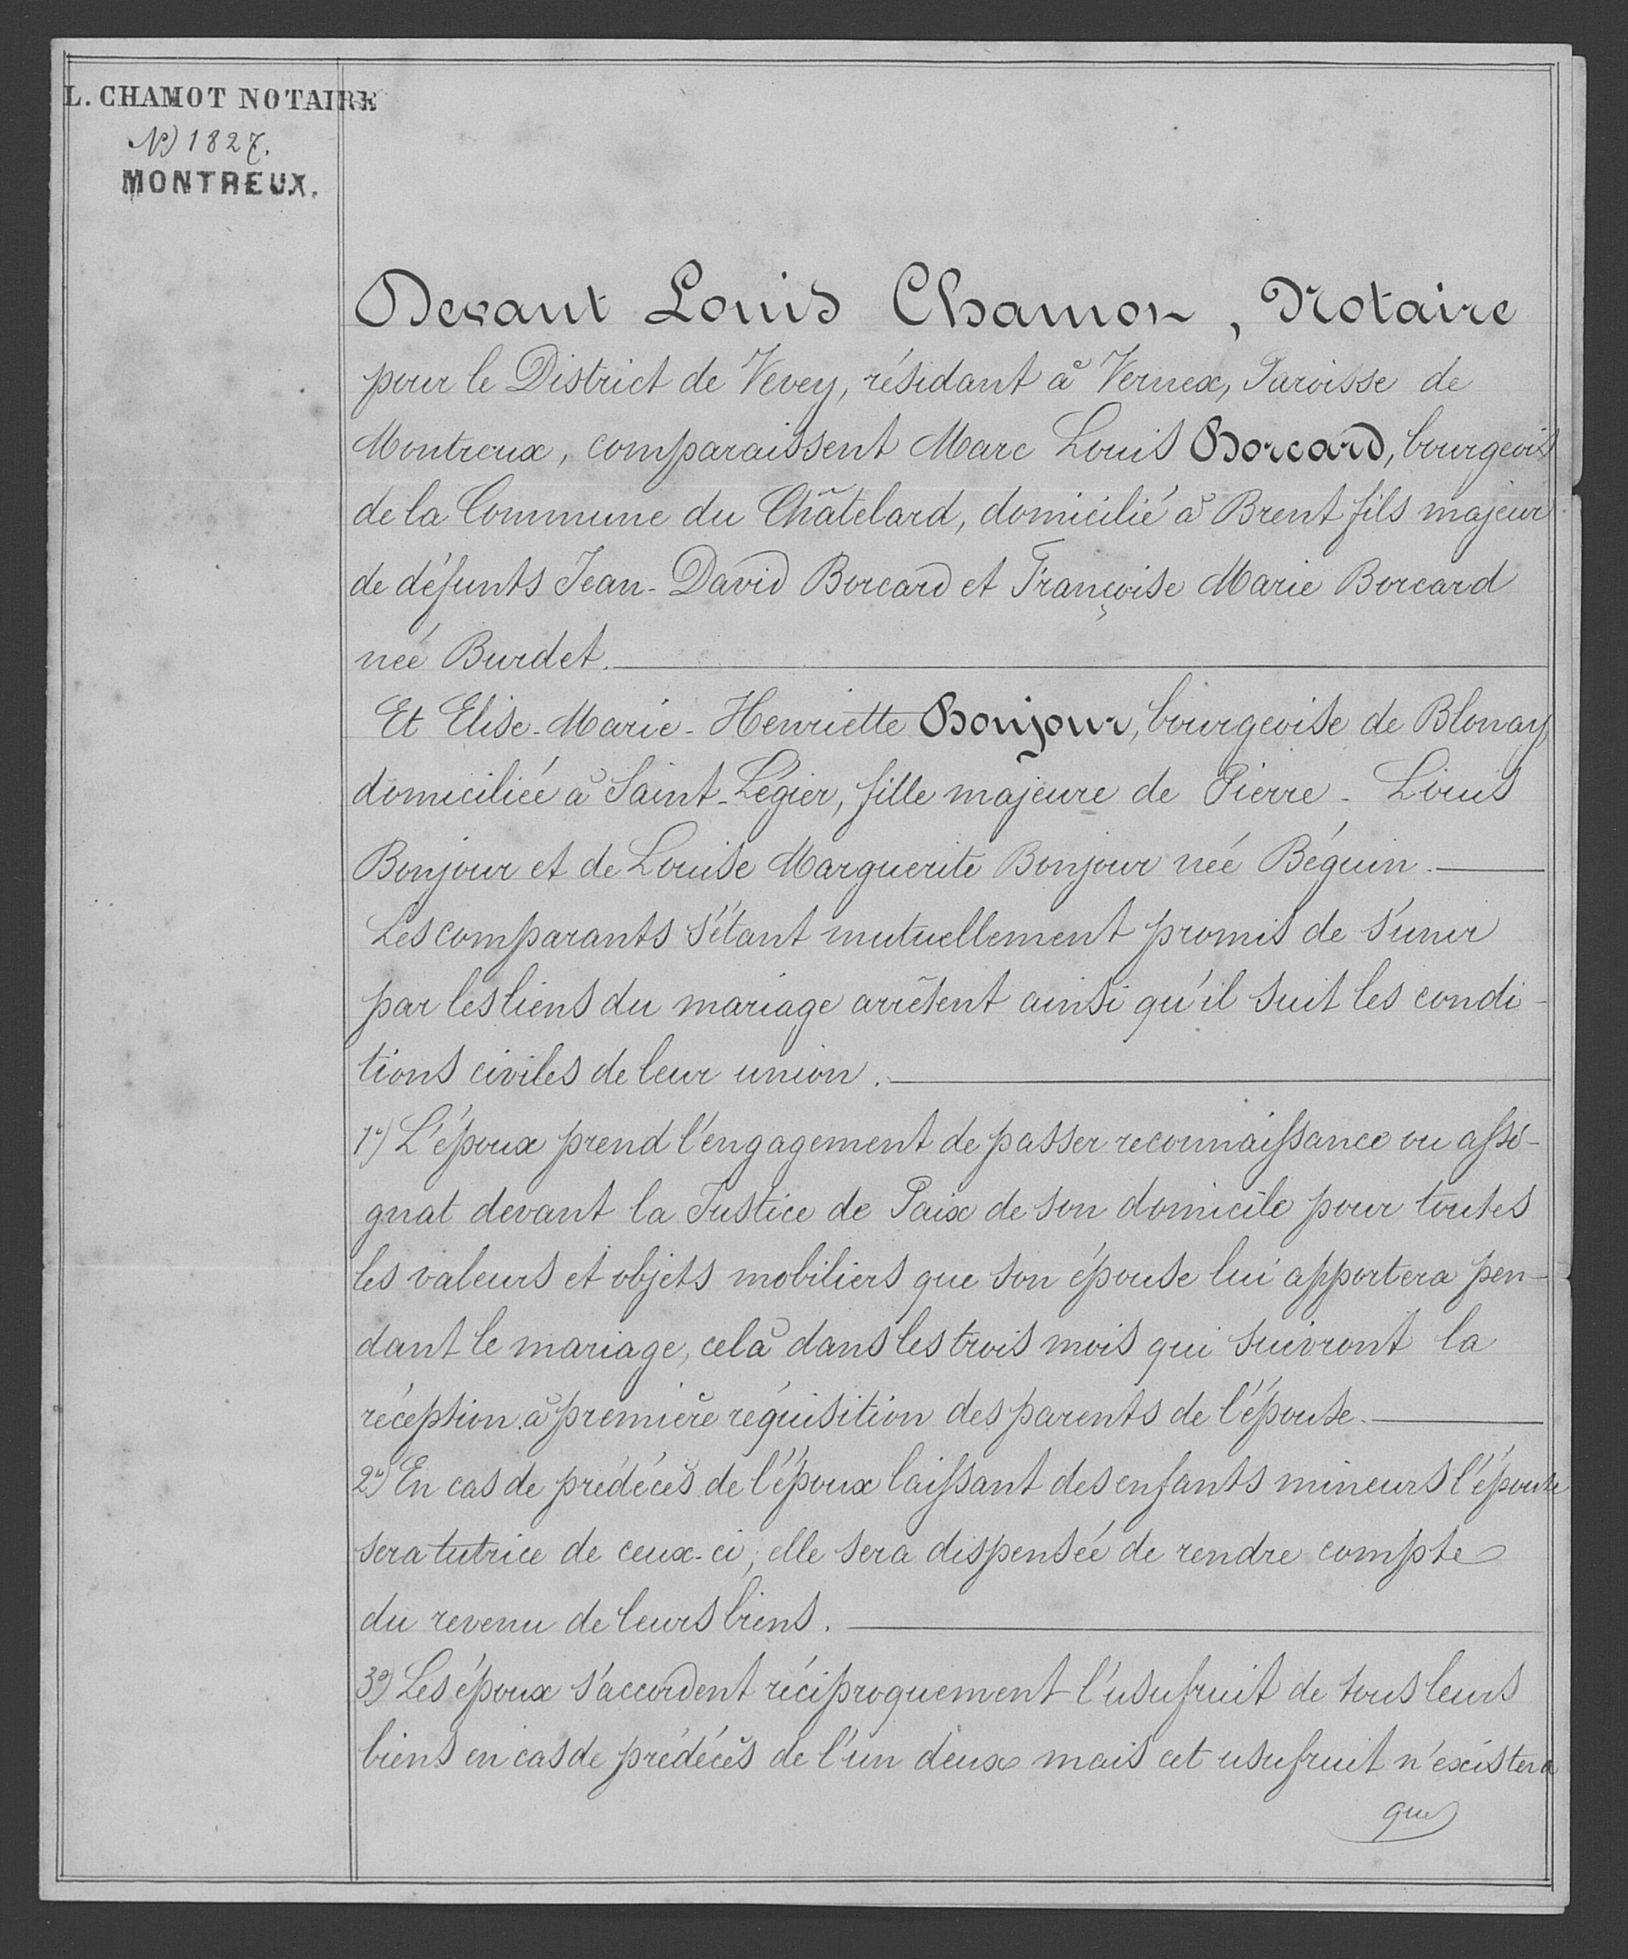 L. CHAMOT NOTAIRE
No) 1827.
MONTREUX.
Devant Louis Chamot, Notaire
pour le District de Vevey, résidant à Vernex, Paroisse de
Montreux, comparaissent Marc Louis Borcard, bourgeois
de la Commune du Châtelard, domicilié à Brent fils majeur
de défunts Jean-David Borcard et Françoise Marie Borcard
née Burdet.
Et Elise-Marie-Henriette Bonjour, bourgeoise de Blonay,
domiciliée à Saint-Légier, fille majeure de Pierre-Louis
Bonjour et de Louise Marguerite Bonjour née Béguin.
Les comparants s'étant mutuellement promis de s'unir
par les liens du mariage arrêtent ainsi qu'il suit les condi-
tions civiles de leur union.
1o) L'époux prend l'engagement de passer reconnaissance ou assi-
gnat devant la Justice de Paix de son domicile pour toutes
les valeurs et objets mobiliers que son épouse lui apportera pen-
dant le mariage, celà dans les trois mois qui suivront la
réception à première réquisition des parents de l'épouse.
2o) En cas de prédécès de l'époux laissant des enfants mineurs l'épouse
sera tutrice de ceux-ci, elle sera dispensée de rendre compte
du revenu de leurs biens.
3o) Les époux s'accordent réciproquement l'usufruit de tous leurs
biens en cas de prédécès de l'un deux mais cet usufruit n'existera
que